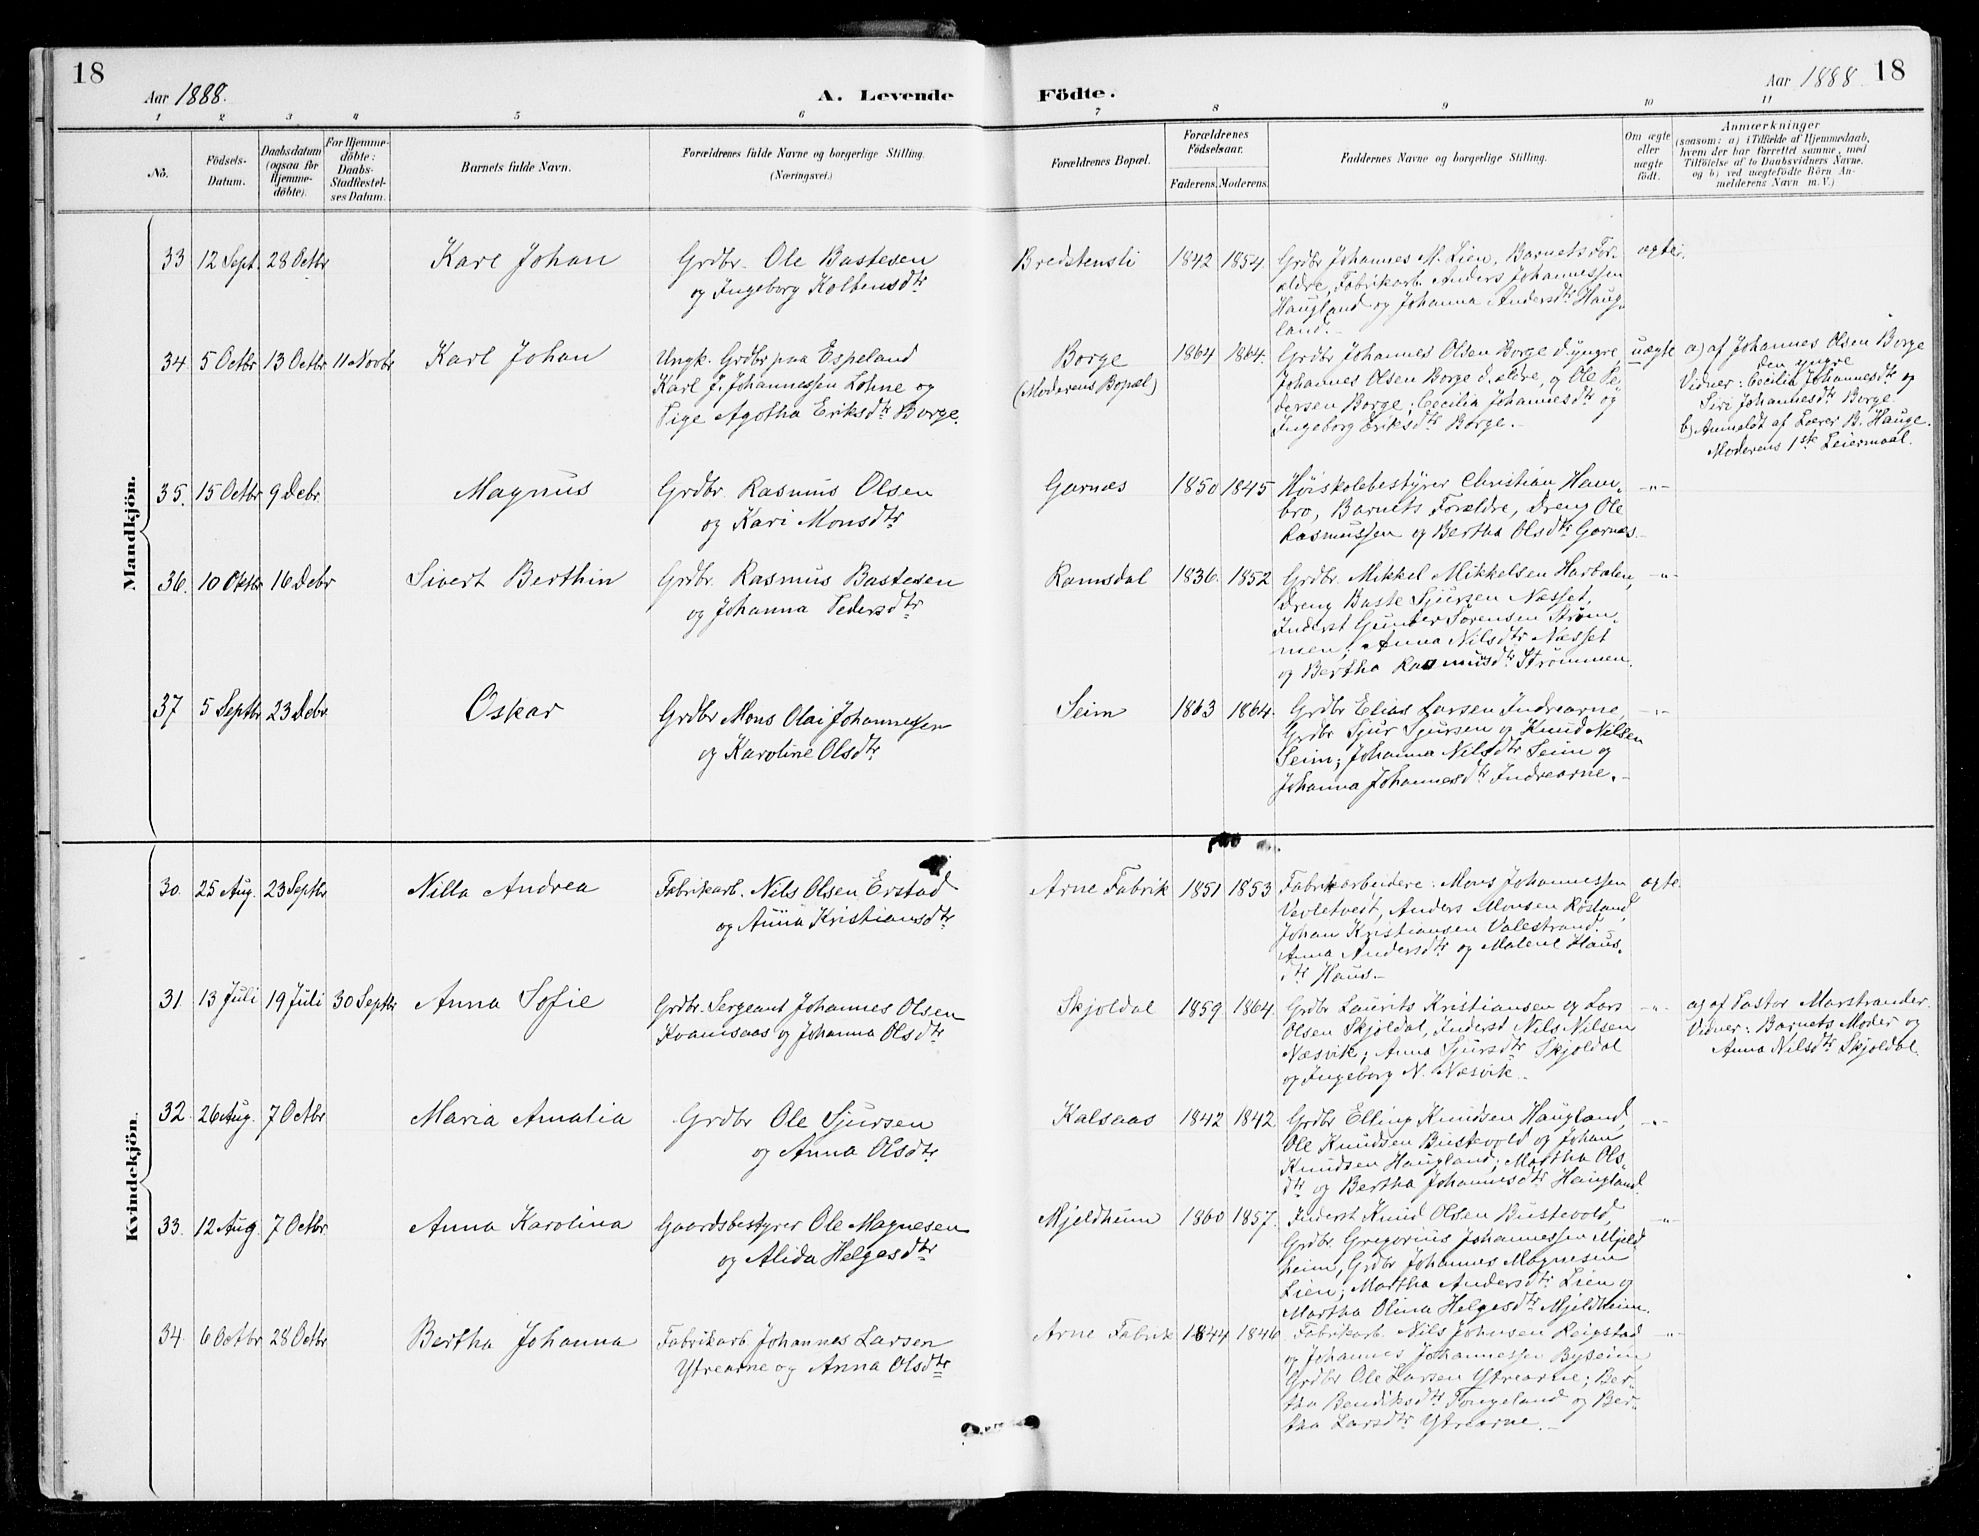 18
Aar 1888.
A. Levende
Födte.
Aar 1888.
18
1 2 3 4 5 6 7 8 9 10 11
No.
Födsels-
Datum.
Daabsdatum
(ogsaa for
Hjemme-
döbte).
For Hjemme-
döbte:
Daabs-
Stadfæstel-
ses Datum.
Barnets fulde Navn.
Forældrenes fulde Navne og borgerlige Stilling.
(Næringsvei.)
Forældrenes Bopæl.
Forældrenes
Födselsaar.
Faderens. Moderens.
Faddernes Navne og borgerlige Stilling.
Om ægte
eller
uægte
födt.
Anmærkninger
(saasom: a) i Tilfælde af Hjemmedaab,
hvem der har forrettet samme, med
Tilföielse af to Daabsvidners Navne.
og b) ved uægtefödte Börn An-
melderens Navn m. V.)
Mandkjön.
33 12 Sept. 28 Octbr Karl Johan
Grdbr. Ole Bastesen
og Ingeborg Koltensdtr
Bredstensli 1842 1854
Grdbr Johannes M. Lien, Barnets For-
ældre, Fabrikarb. Anders Johannessen
Haugland og Johanna Andersdtr Haug-
land.
ægte.
34 5 Octbr 13 Octbr 11 Novbr Karl Johan
Ungk. Grdbr paa Espeland
Karl J. Johannessen Lohne og
Pige Agotha Eriksdtr Borge.
Borge
(Moderens Bopæl)
1864 1864.
Grdbr Johannes Olsen Borge d. yngre,
Johannes Olsen Borge d. ældre, og Ole Pe-
dersen Borge; Cecilia Johannesdtr og
Ingeborg Eriksdtr Borge.
uægte
a) af Johannes Olsen Borge
den yngre
Vidner: Cecilia Johannesdtr og
Siri Johannesdtr Borge.
b) Anmeldt af Lærer B. Hauge.
Moderens 1ste Leiermaal.
35. 15 Octbr 9 Debr. Magnus
Grdbr. Rasmus Olsen
og Kari Monsdtr
Garnæs 1850 1845
Høiskolebestyrer Christian Ham-
bro, Barnets Forældre, Dreng Ole
Rasmussen og Bertha Olsdtr Garnæs.
-"-
36. 10 Oktbr 16 Debr Sivert Berthin
Grdbr. Rasmus Bastesen
og Johanna Pedersdtr
Ramsdal 1836. 1852
Grdbr. Mikkel Mikkelsen Hasbalen,
Dreng Baste Sjursen Næsset,
Inderst Gunder Sørensen Strøm-
men; Anna Nilsdtr Næsset
og Bertha Rasmusdtr Strømmen.
-"-
37 5 Septbr 23 Debr. Oskar
Grdbr Mons Olai Johannessen
og Karoline Olsdtr
Seim 1863 1864.
Grdbr Elias Larsen Indrearne,
Grdbr Sjur Sjursen og Knud Nilsen
Seim; Johanna Nilsdtr Seim og
Johanna Johannesdtr Indrearne.
-"-
Kvindekjön.
30. 25 Aug. 23 Septbr Nilla Andrea
Fabrikarb. Nils Olsen Erstad
og Anna Kristiansdtr
Arne Fabrik 1851 1853
Fabrikarbeidere: Mons Johannessen
Vevletvedt, Anders Monsen Røsland,
Johan Kristiansen Valestrand.
Anna Andersdtr og Malene Haus-
dtr Haus.
ægte.
31. 13 Juli 19 Juli 30 Septbr Anna Sofie
Grdbr. Sergeant Johannes Olsen
Kvamsaas og Johanna Olsdtr
Skjoldal 1859 1864.
Grdbr Laurits Kristiansen og Lars
Olsen Skjoldal, Inderst Nils Nilsen
Næsvik; Anna Sjursdtr Skjoldal
og Ingeborg N. Næsvik.
-"-
a) af Pastor Marstrander.
Vidner: Barnets Moder og
Anna Nilsdtr Skjoldal.
32. 26 Aug. 7 Octbr Maria Amalia
Grdbr Ole Sjursen
og Anna Olsdtr.
Kalsaas 1842 1842
Grdbr Elling Knudsen Haugland,
Ole Knudsen Bustevold og Johan
Knudsen Haugland; Martha Ols-
dtr og Bertha Johannesdtr Haugland.
-"-
33. 12 Aug. 7 Octbr. Anna Karolina
Gaardsbestyrer Ole Magnesen
og Alida Helgesdtr
Mjeldheim 1860 1857.
Inderst Knud Olsen Bustevold,
Grdbr. Gregorius Johannessen Mjeld-
heim, Grdbr Johannes Magnesen
Lien; Martha Andersdtr Lien og
Martha Olina Helgesdtr Mjeldheim.
-"-
34. 6 Octbr 28 Octbr Bertha Johanna
Fabrikarb. Johannes Larsen
Ytrearne og Anna Olsdtr
Arne Fabrik 1844 1846.
Fabrikarb. Nils Johnsen Reigstad
og Johannes Johannessen Byseim,
Grdbr Ole Larsen Ytrearne; Ber-
tha Bendiksdtr Tongeland og Ber-
tha Larsdtr Ytrearne.
-"-